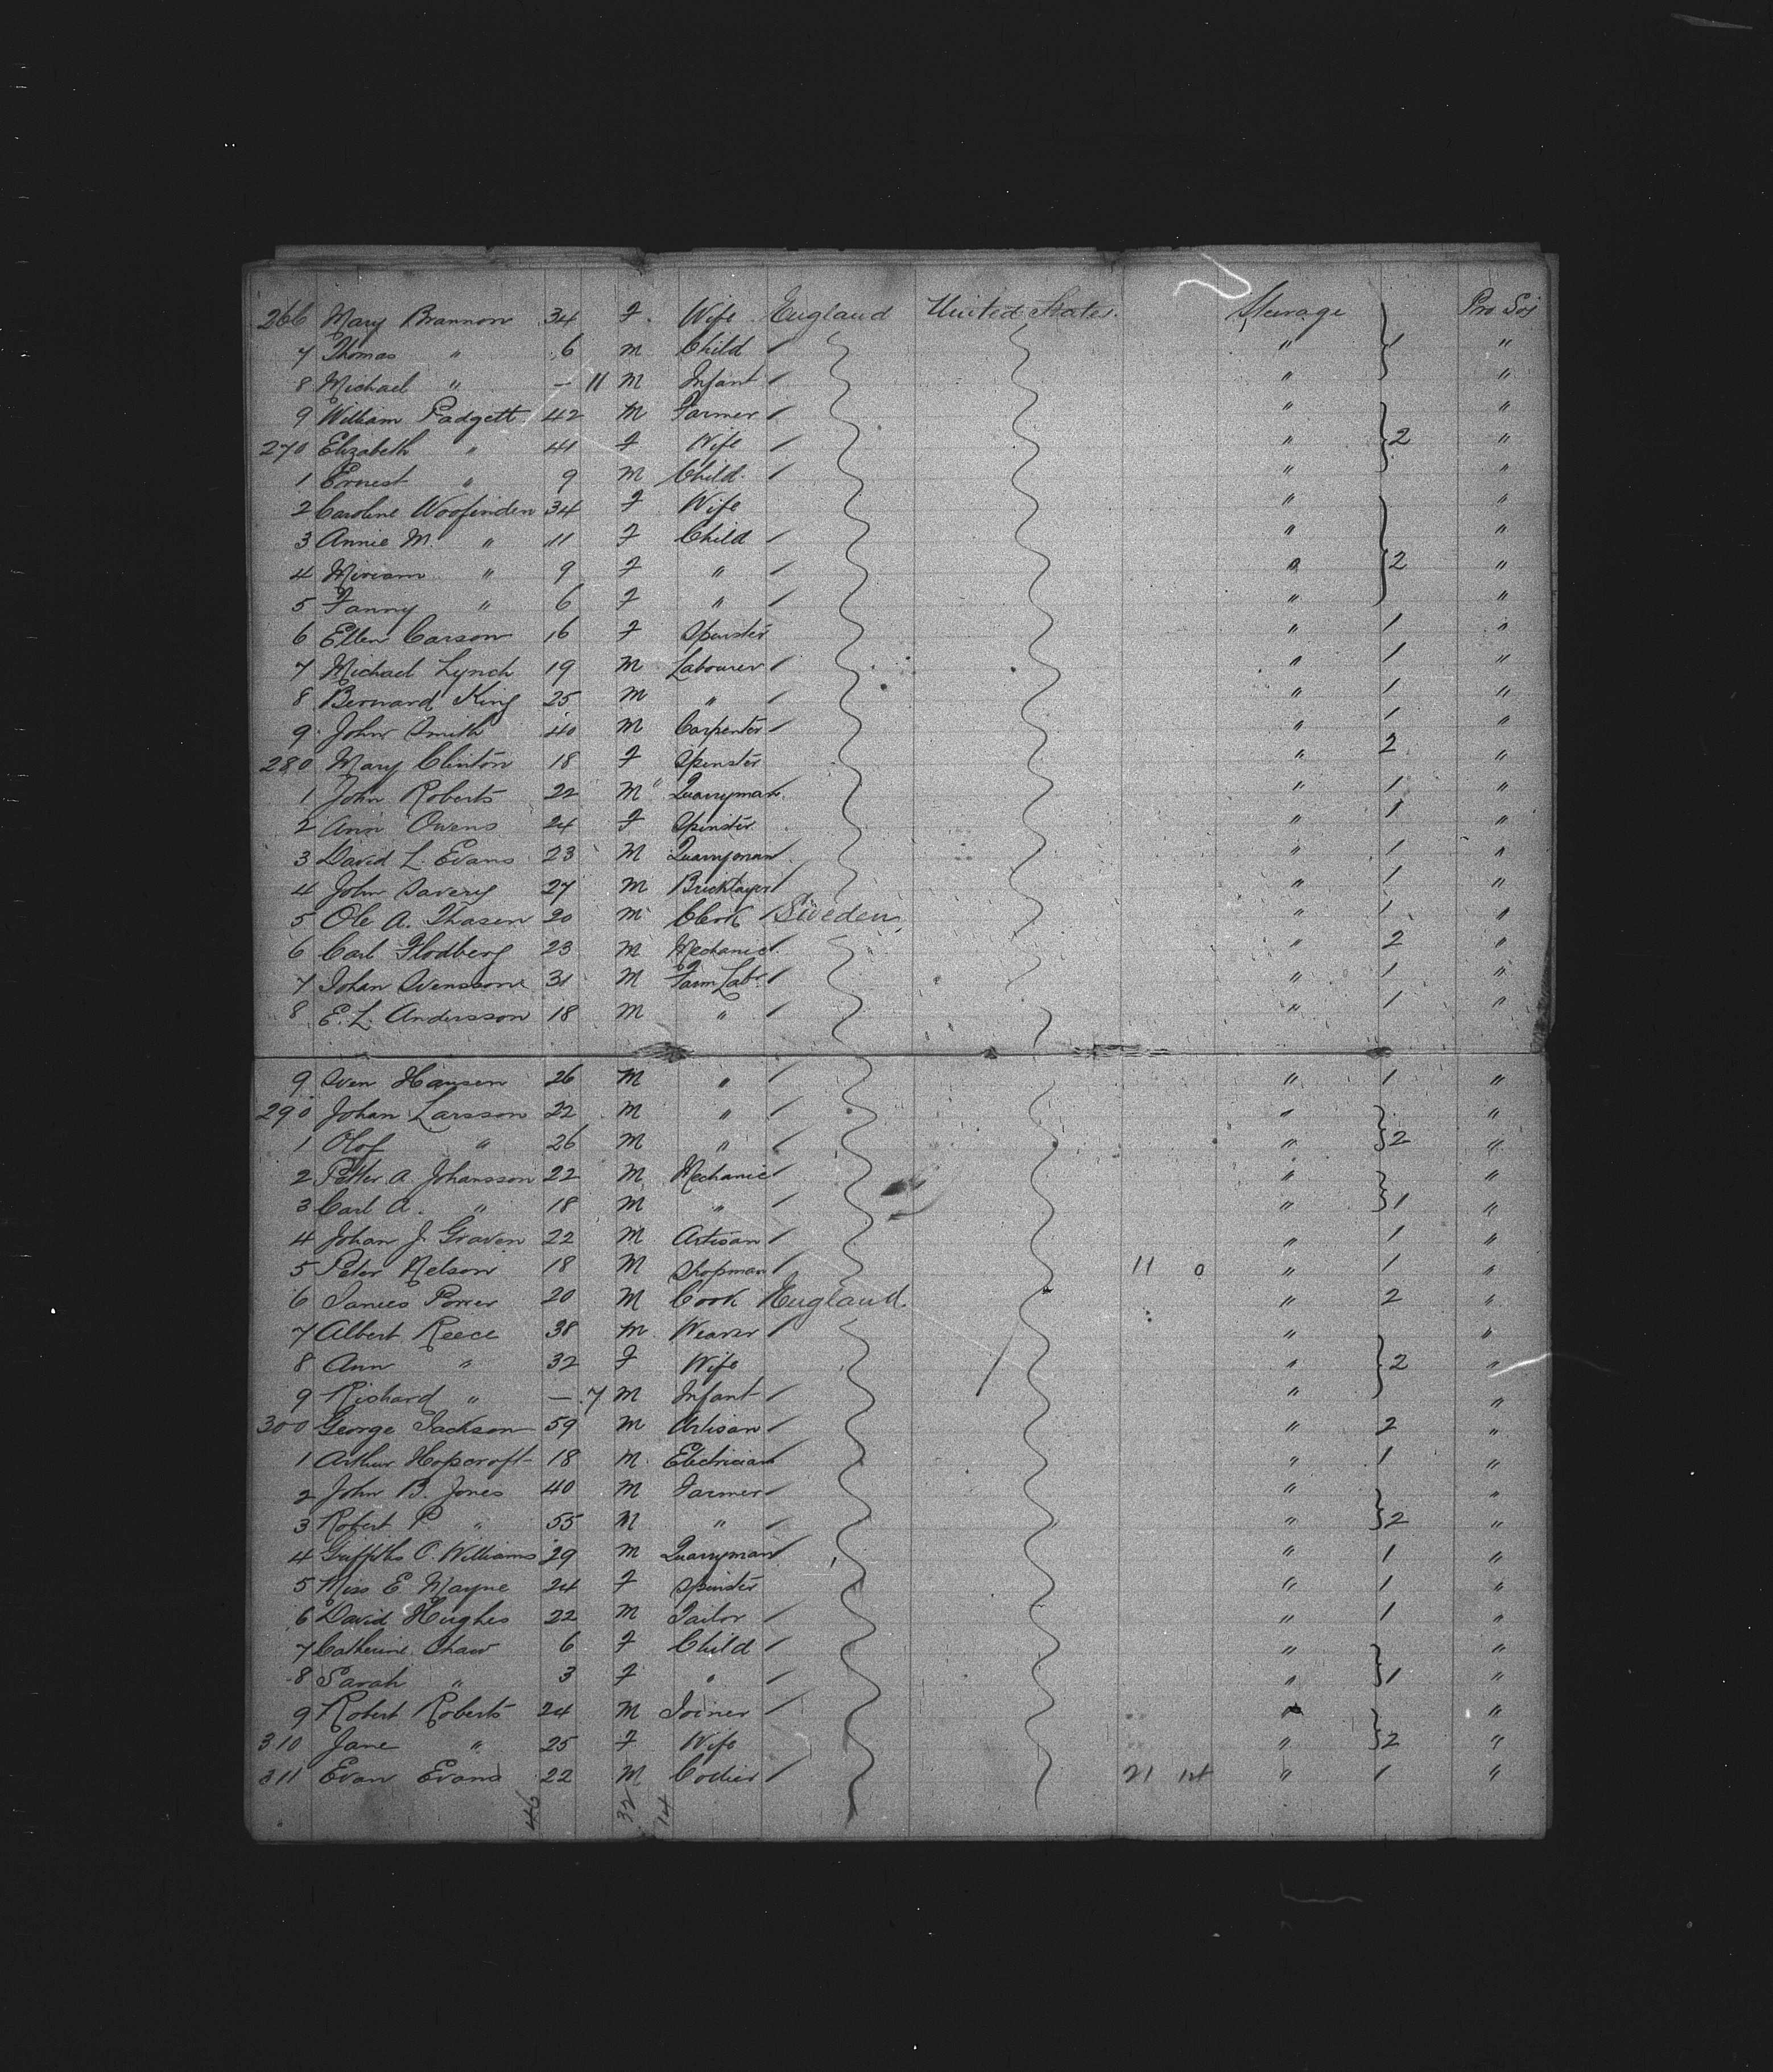 266 Mary Brannon 34 F. Wife England United States Steerage } Pro Soj
7 Thomas " 6 M Child / " 1 "
8 Michael " — 11 M Infant / " "
9 William Padgett 42 M Farmer / " "
270 Elizabeth " 41 F Wife / " } 2 "
1 Ernest " 9 M Child / " "
2 Caroline Woofinden 34 F Wife " "
3 Annie M. " 11 F Child / " "
4 Miriam " 9 F " / " } 2 "
5 Fanny " 6 F " / " "
6 Ellen Carson 16 F Spinster " 1 "
7 Michael Lynch 19 M Labourer / " 1 "
8 Bernard King 25 M " / " 1 "
9 John Smith 40 M Carpenter / " 1 "
280 Mary Clinton 18 F Spinster " 2 "
1 John Roberts 22 M " Quarryman " 1 "
2 Ann Owens 24 F Spinster " 1 "
3 David L. Evans 23 M Quarryman " 1 "
4 John Savery 27 M Bricklayer / " 1 "
5 Ole A. Thasen 20 M Clerk Sweden " 1 "
6 Carl Flodberg 23 M Mechanic / " 2 "
7 Johan Svensson 31 M Farm Labr / " 1 "
8 E. L. Andersson 18 M " / " 1 "
9 Sven Hansen 26 M " / " 1 "
290 Johan Larsson 22 M " / " "
1 Olof " 26 M " / " } 2 "
2 Petter A. Johansson 22 M Mechanic / " "
3 Carl A. " 18 M " / " } 1 "
4 Johan J. Graven 22 M Artisan / " 1 "
5 Peter Nelson 18 M Shopman / 11 0 " 1 "
6 James Power 20 M Cook England " 2 "
7 Albert Reece 38 M Weaver / " "
8 Ann " 32 F Wife " } 2 "
9 Richard " — 7 M Infant / " "
300 George Jackson 59 M Artisan / " 2 "
1 Arthur Hopcroft 18 M. Electrician " 1 "
2 John B. Jones 40 M Farmer / " "
3 Robert P " 55 M " / " } 2 "
4 Griffiths O. Williams 29 M Quarryman / " 1 "
5 Miss E Mayne 24 F Spinster " 1 "
6 David Hughes 22 M Tailor / " 1 "
7 Catherine Shaw 6 F Child / " "
8 Sarah " 3 F " / " } 1 "
9 Robert Roberts 24 M Joiner / " "
310 Jane " 25 F Wife " } 2 "
311 Evan Evans 22 M / 21 " 1 "
46 32 14